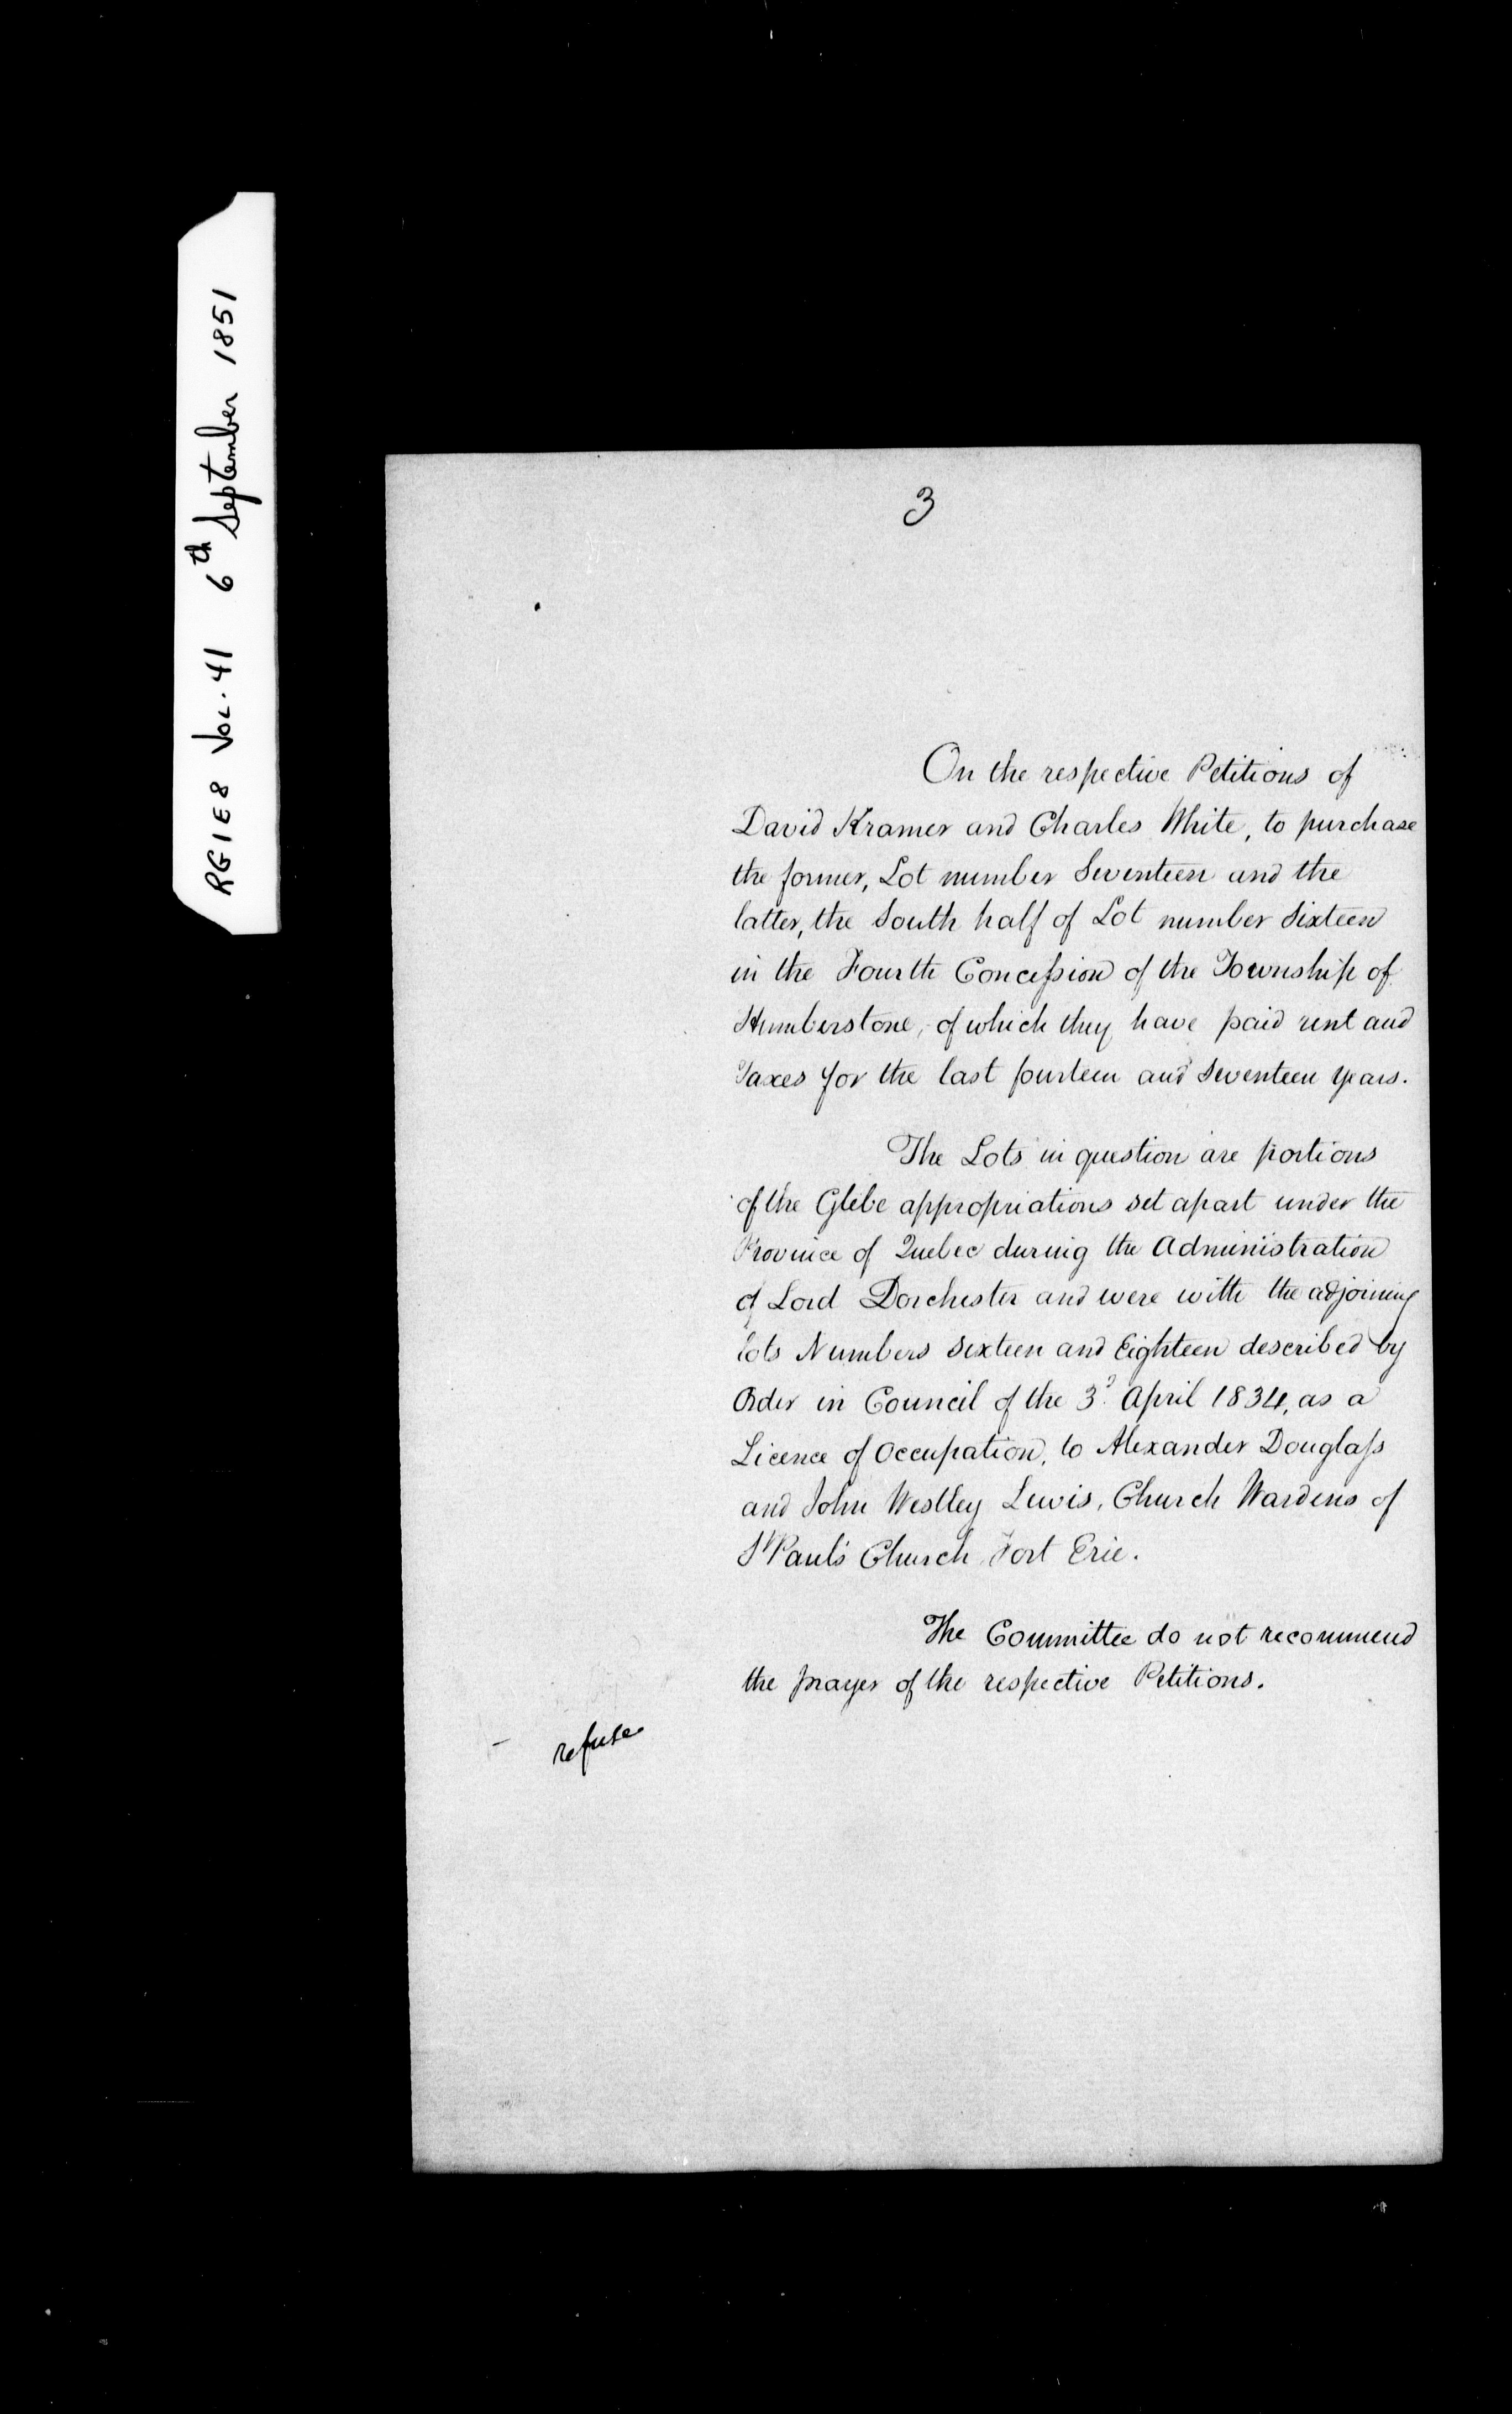 RG1E8 VOL. 41 6th September 1851
3
On the respective Petitions of
David Kramer and Charles White, to purchase
the former, Lot number Seventeen and the
latter, the South half of Lot number Sixteen
in the Fourth Concession of the Township of
Humberstone, of which they have paid rent and
Taxes for the last fourteen and Seventeen years.
The Lots in question are portions
of the Glebe appropriations set apart under the
Province of Quebec during the Administration
of Lord Dorchester and were with the adjoining
lots Numbers sixteen and Eighteen described by
Order in Council of the 3d April 1834, as a
Licence of Occupation, to Alexander Douglass
and John Westley Lewis, Church Wardens of
St Paul's Church Fort Erie.
The Committee do not recommend
the prayer of the respective Petitions.
refuse